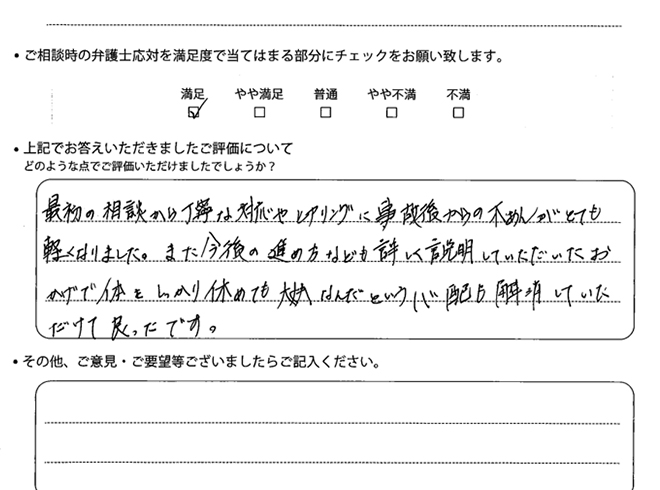 • ご相談時の弁護士応対を満足度で当てはまる部分にチェックをお願い致します。
満足 やや満足 普通 やや不満 不満
• 上記でお答えいただきましたご評価について
どのような点でご評価いただけましたでしょうか？
最初の相談から丁寧な対応やヒアリングに事故後からの不あんがとても
軽くなりました。また今後の進め方なども詳しく説明していただいたお
かげで体をしっかり休めても大丈夫なんだという心配も解消していた
だけて良ったです。
• その他、ご意見・ご要望等ございましたらご記入ください。